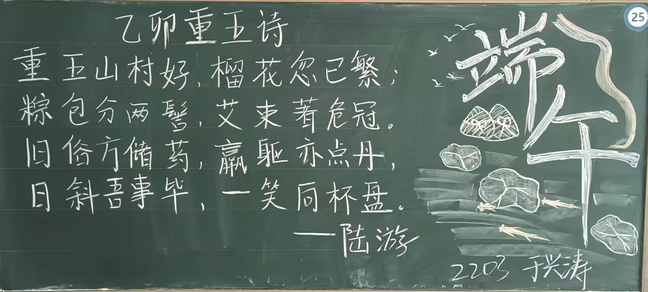 乙卯重五诗
重五山村好，榴花忽已繁；
粽包分两髻，艾束著危冠。
旧俗方储药，羸躯亦点丹，
日斜吾事毕，一笑向杯盘。
—陆游
端午
2203 于兴涛
25